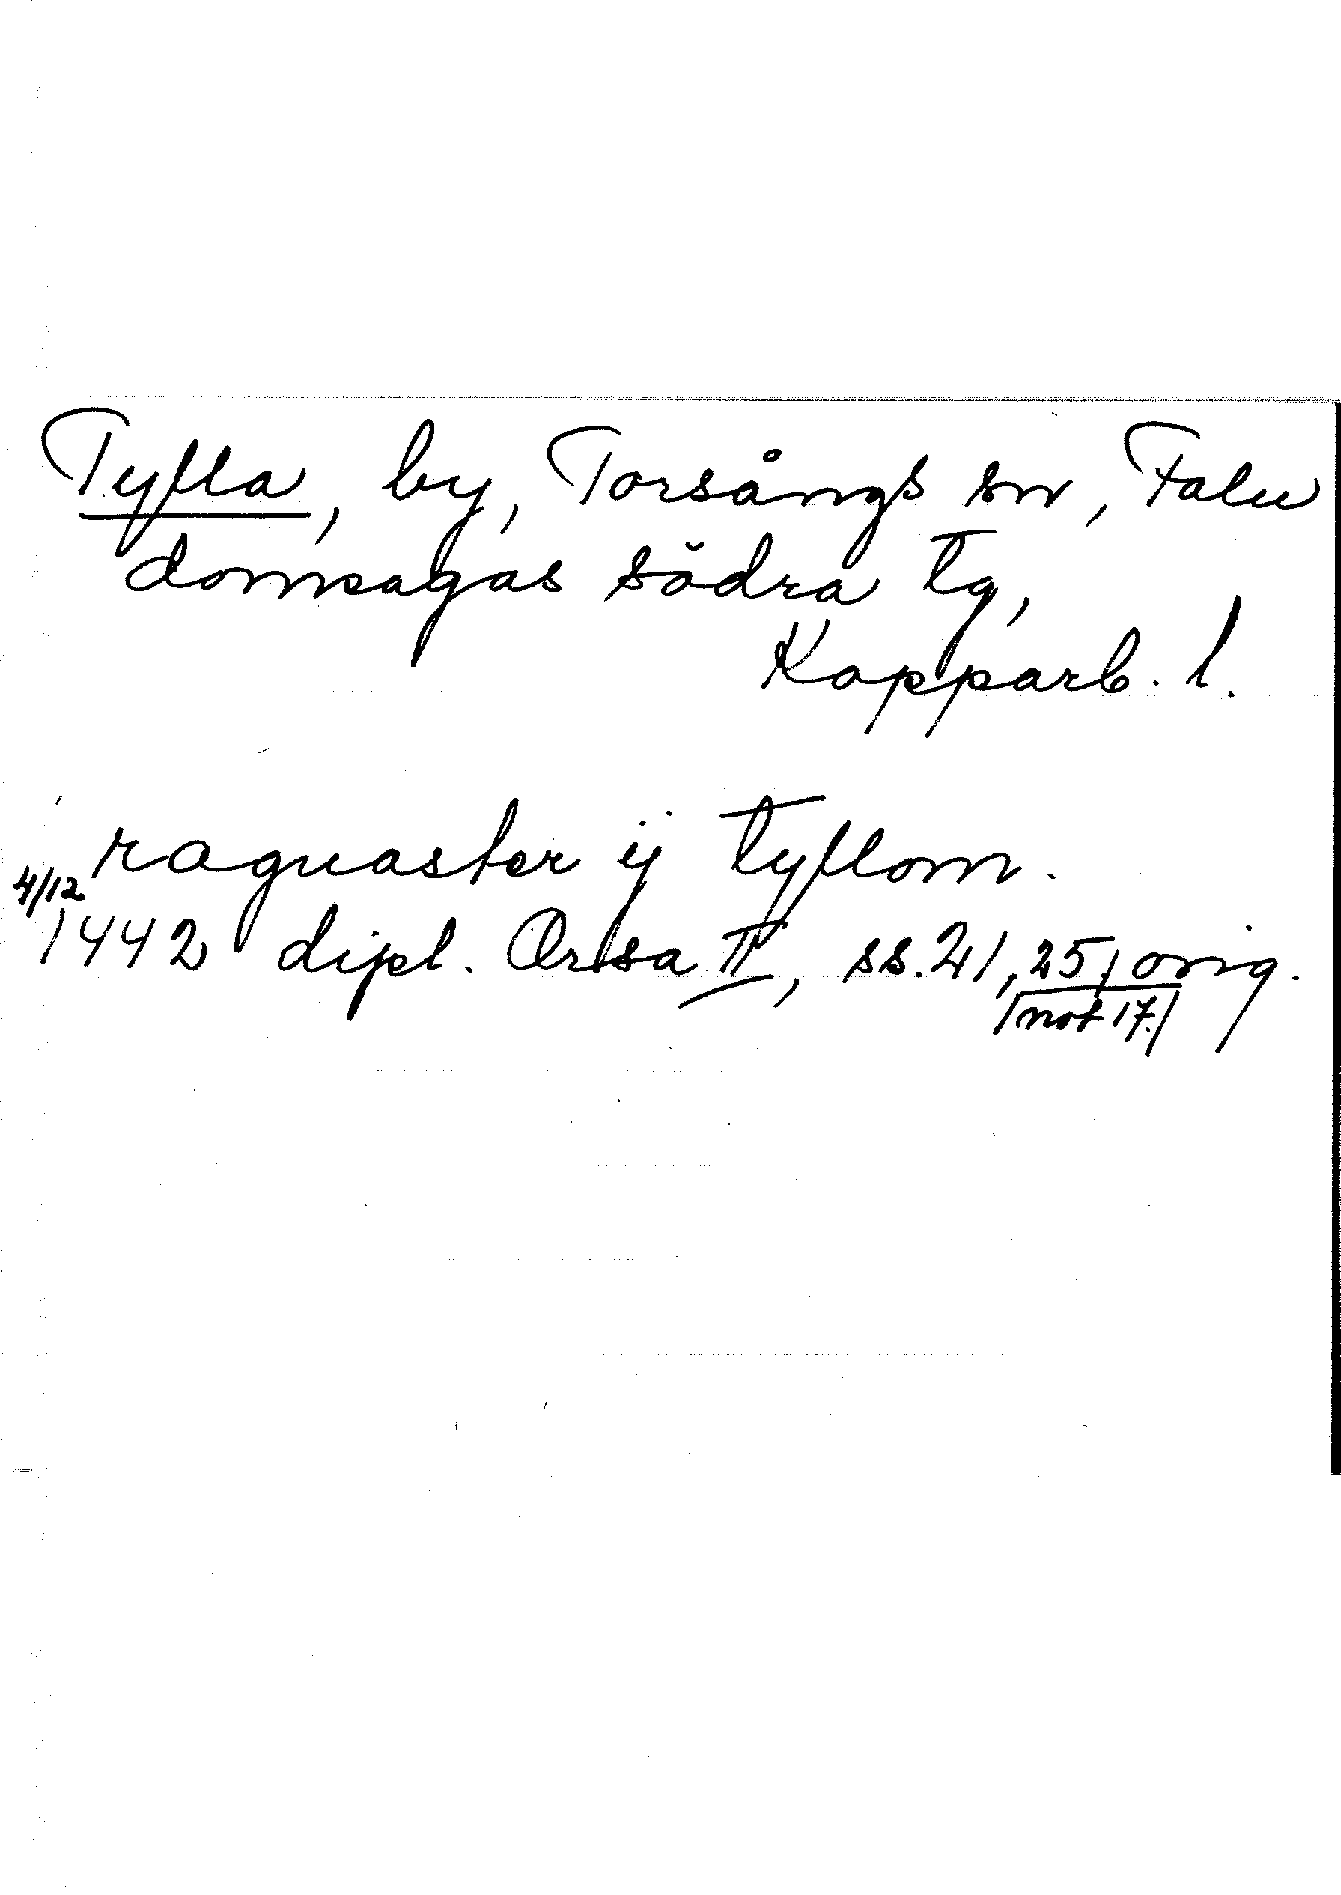 Tyfla, by, Torsångs sn, Falu
domsagas södra tg,
Kopparb. l.
raguaster ij tyflom.
4/12
1442 dipl. Orsa II, ss. 21, 25, orig.
/not 17./